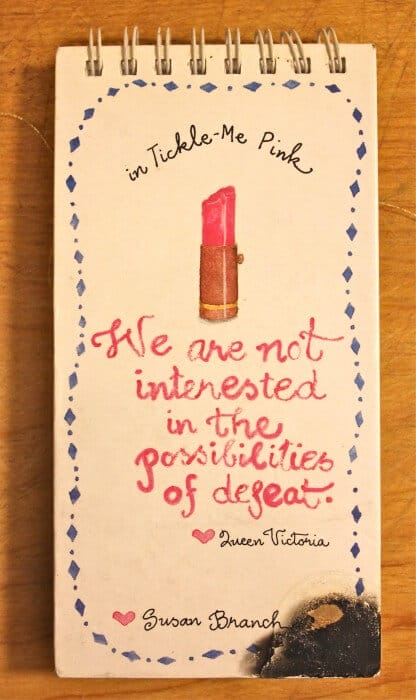 in Tickle-Me Pink
We are not
interested
in the
possibilities
of defeat.
Queen Victoria
Susan Branch